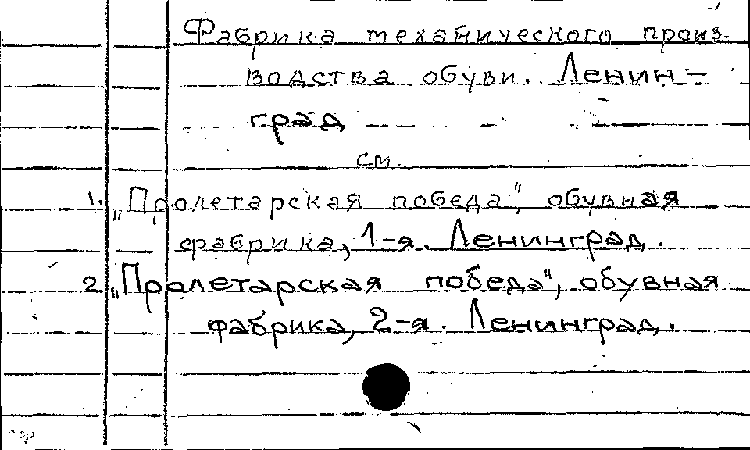 Фабрика механического произ-
водства обуви. Ленин-
град
см.
1. „Пролетарская победа", обувная
фабрика, 1-я. Ленинград.
2. „Пролетарская победа", обувная
фабрика, 2-я. Ленинград.